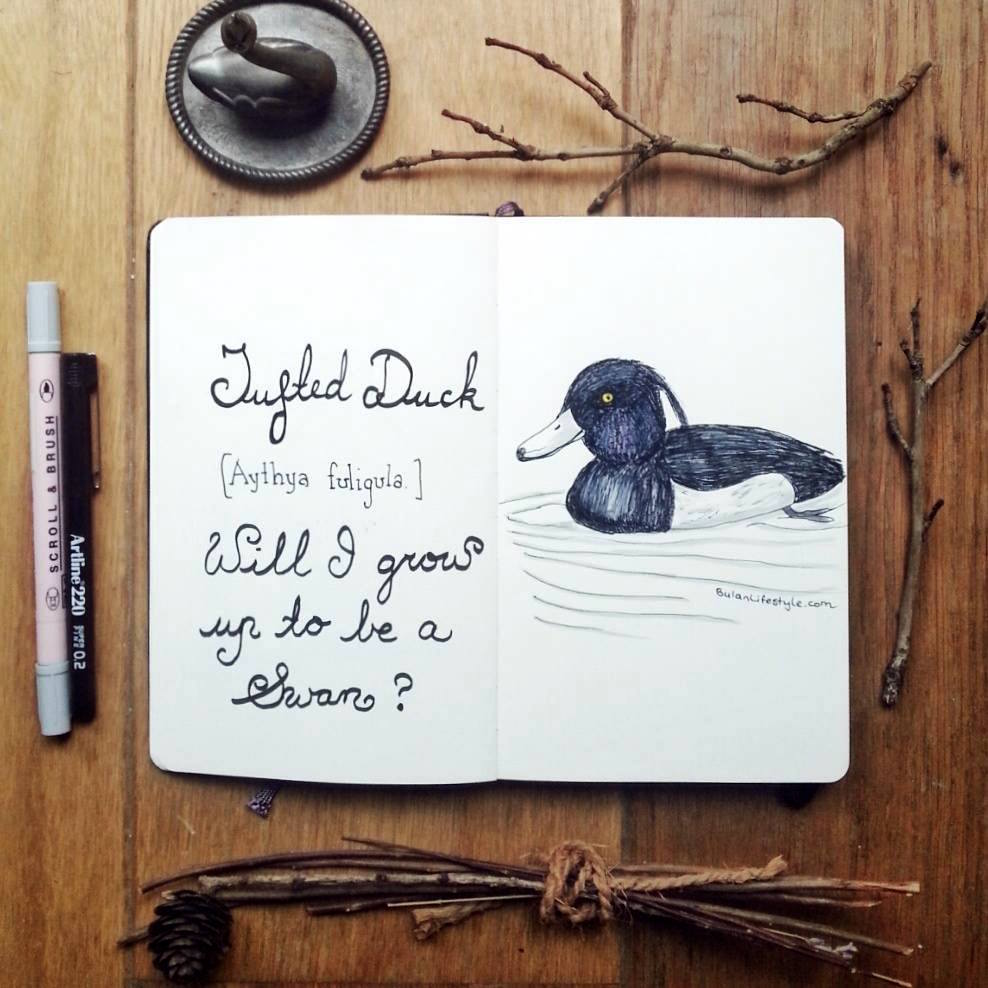 Tufted Duck
[Aythya fuligula.]
Will I grow
up to be a
Swan?
BulanLifestyle.com
SCROLL & BRUSH
Artline 220
0.2